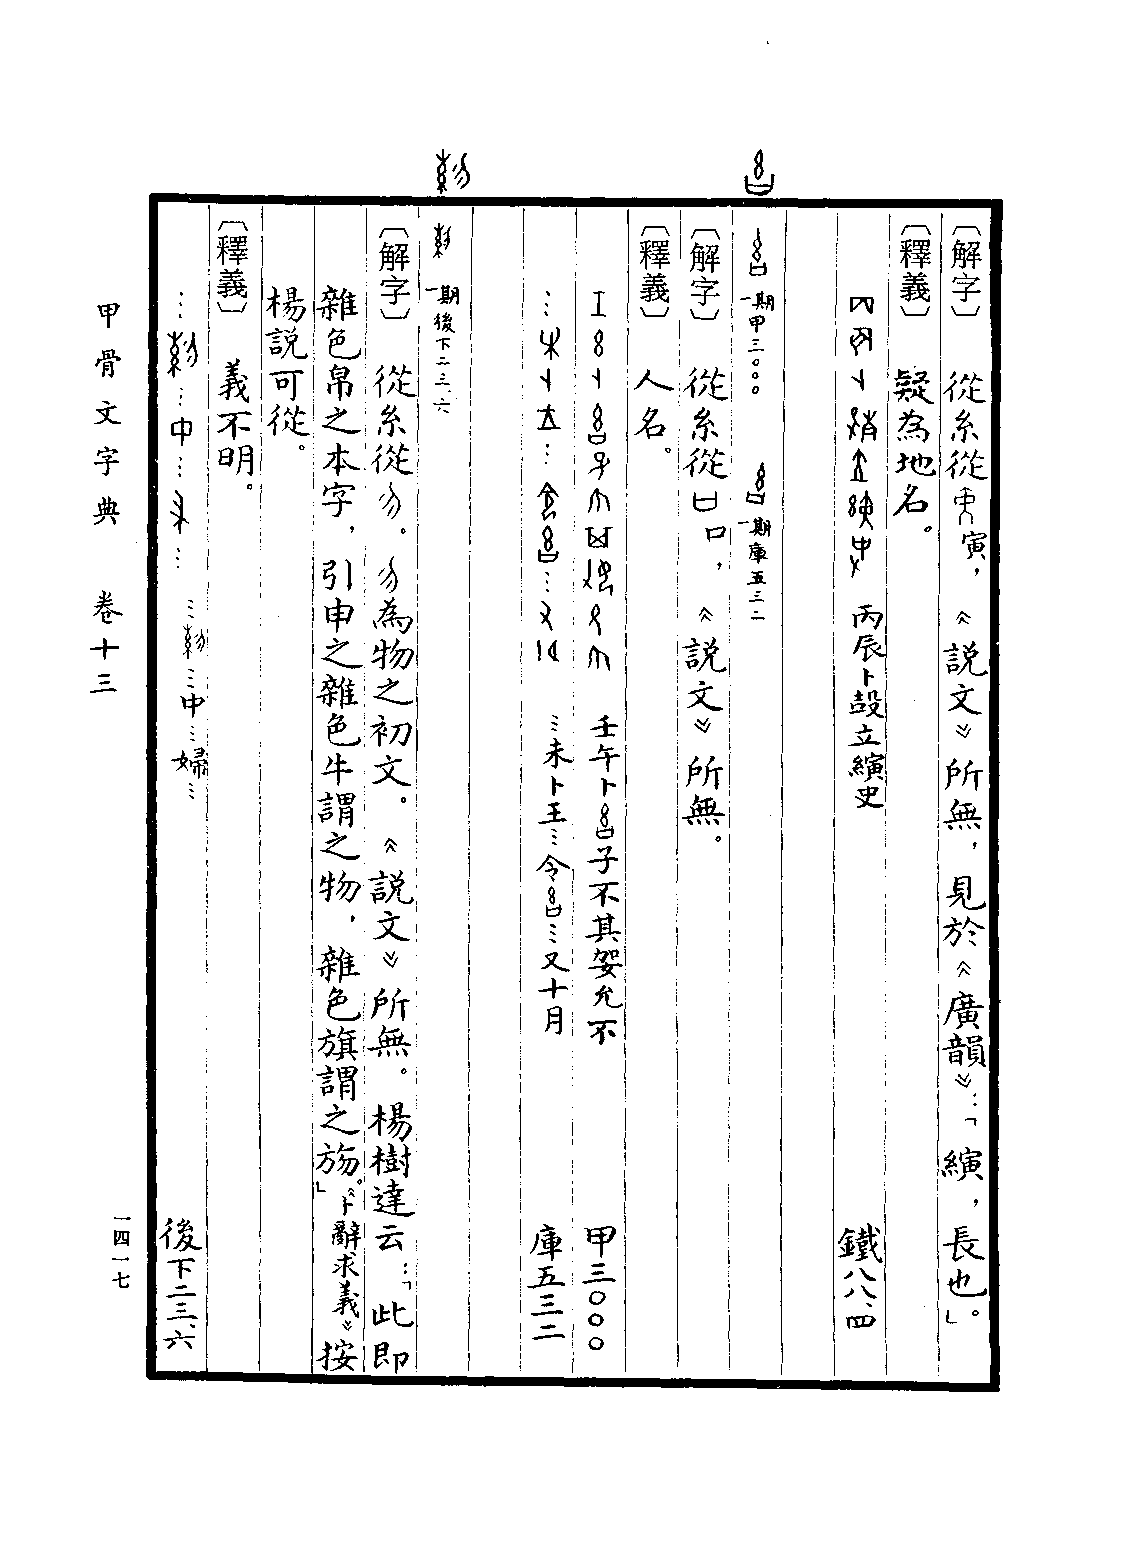 〔解字〕 從糸從寅,《說文》所無,見於《廣韻》:「縯,長也」。
〔釋義〕 疑為地名。
丙辰卜㱿立縯史 鐵八八、四
一期甲三〇〇〇 一期庫五三二
〔解字〕 從糸從口,《說文》所無。
〔釋義〕 人名。
壬午卜子不其㛗允不 甲三〇〇〇
…未卜王…令…又十月 庫五三二
一期後下二三、六
〔解字〕 從糸從勿。勿為物之初文。《說文》所無。楊樹達云:「此即
雜色帛之本字,引申之雜色牛謂之物,雜色旗謂之㫚。」《卜辭求義》按
楊說可從。
〔釋義〕 義不明。
……中…婦… 後下二三、六
甲骨文字典 卷十三 一四一七